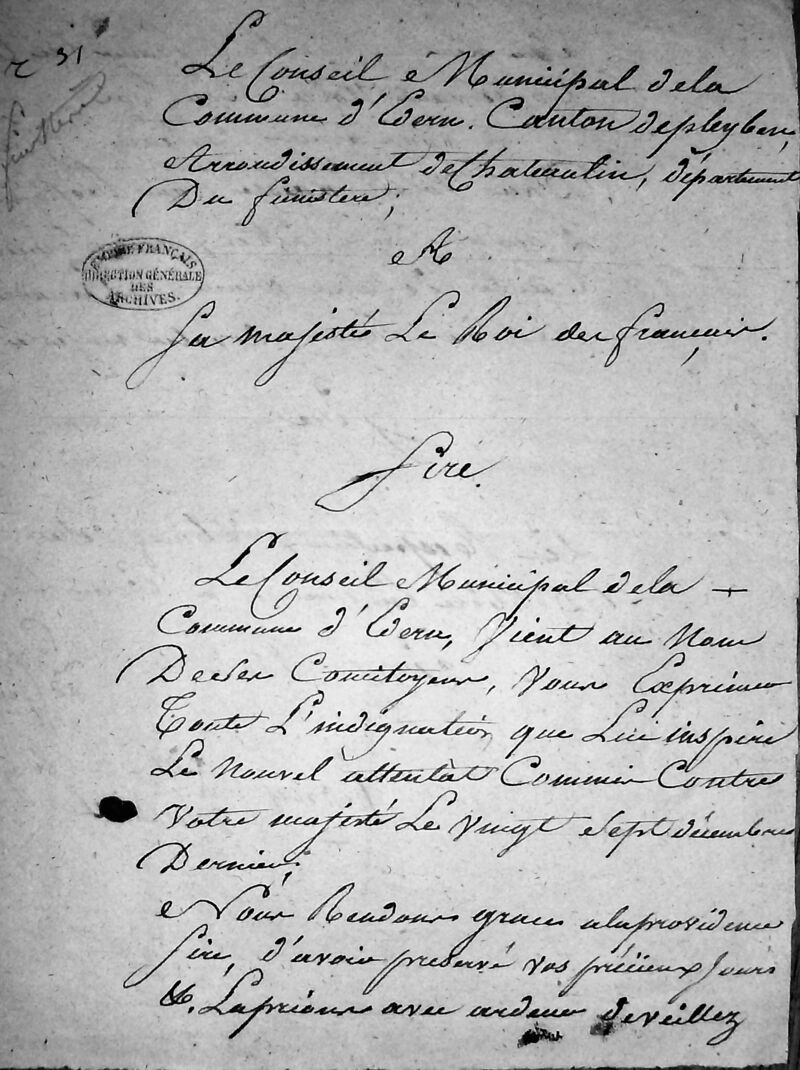 r 31
finistere
Le Conseil Municipal dela
Commune d'Edern. Canton depleyben,
Arrondissement deChateaulin, département
Du finistere;
A
Sa majesté Le Roi des français.
EMPIRE FRANÇAIS
DIRECTION GÉNÉRALE
DES
ARCHIVES.
Sire.
Le Conseil Municipal dela
Commune d'Edern, Vient au Nom
De ses Concitoyens, Vous Exprimer
Toute L'indignation que Lui inspire
Le Nouvel attentat Commis Contre
Votre majesté Le Vingt Sept décembre
Dernier;
Nous Rendons grace alaprovidence
Sire, d'avoir preservé vos précieux Jours
&. Laprions avec ardeur deveillez